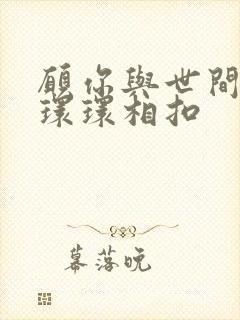 願你與世間
環環相扣
幕落晚